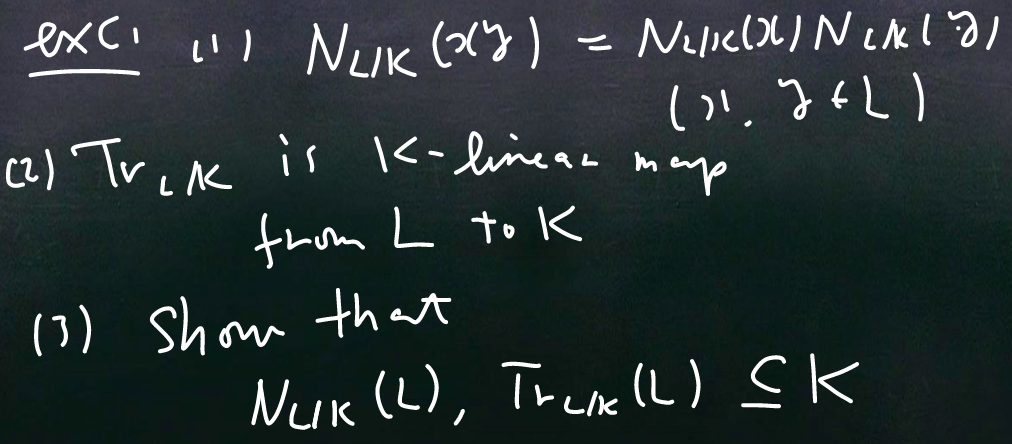 exc. (1) N_{L/K}(xy) = N_{L/K}(x) N_{L/K}(y)
(x, y ∈ L)
(2) Tr_{L/K} is K-linear map
from L to K
(3) Show that
N_{L/K}(L), Tr_{L/K}(L) ⊆ K